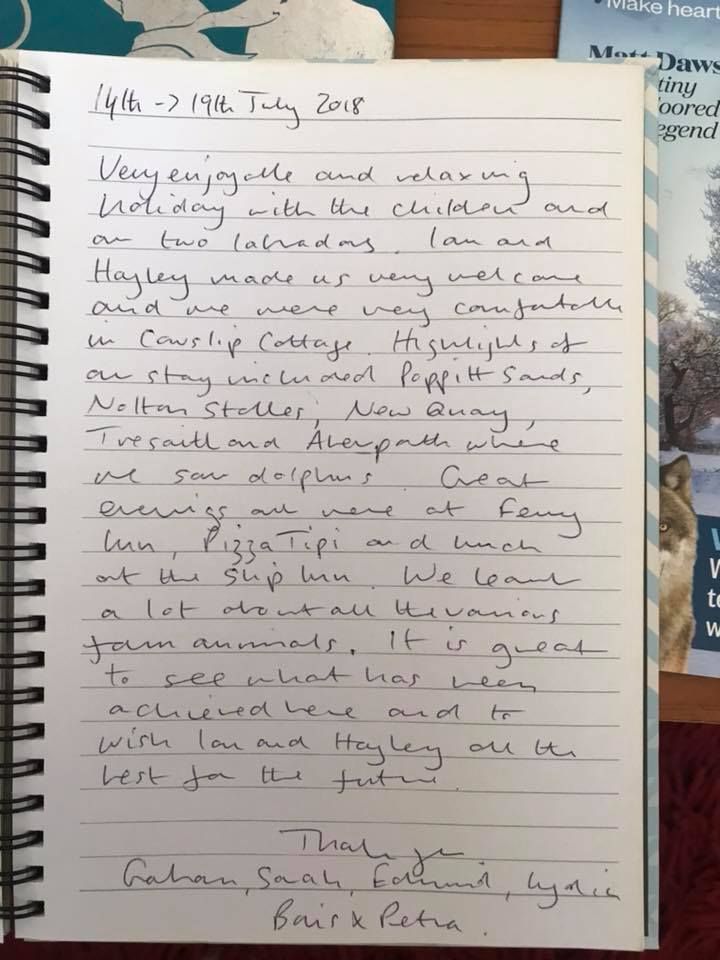 Make heart
Matt Daws
tiny
oored
egend
14th -> 19th July 2018
Very enjoyable and relaxing
holiday with the children and
our two labradors. Ian and
Hayley made us very welcome
and we were very comfortable
in Cowslip Cottage. Highlights of
our stay included Poppitt Sands,
Nolton Stables, New Quay,
Tresaith and Aberporth where
we saw dolphins. Great
evenings out were at Ferry
Inn, Pizza Tipi and lunch
at the Ship Inn. We learnt
a lot about all the various
farm animals. It is great
to see what has been
achieved here and to
wish Ian and Hayley all the
best for the future.
Thank you
Graham, Sarah, Edmund, Lydia
Boris x Petra.
W
W
to
w